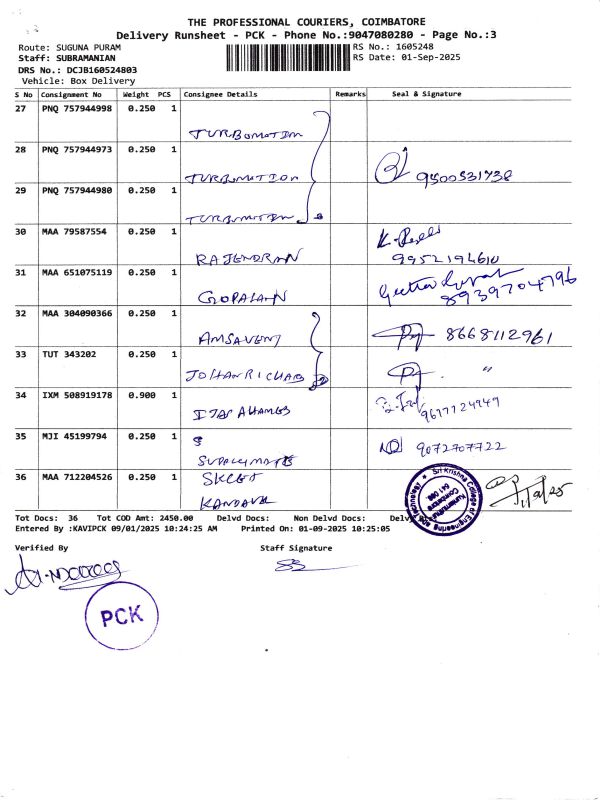 THE PROFESSIONAL COURIERS, COIMBATORE
Delivery Runsheet - PCK - Phone No.:9047080280 - Page No.:3
Route: SUGUNA PURAM
RS No.: 1605248
Staff: SUBRAMANIAN
RS Date: 01-Sep-2025
DRS No.: DCJB160524803
Vehicle: Box Delivery
S No Consignment No Weight PCS Consignee Details Remarks Seal & Signature
27 PNQ 757944998 0.250 1
TURBOMOTION
28 PNQ 757944973 0.250 1
TURBOMOTION 9500531738
29 PNQ 757944980 0.250 1
TURBOMOTION
30 MAA 79587554 0.250 1
RAJENDRAN 9952194610
31 MAA 651075119 0.250 1
GOPALAN 8939704796
32 MAA 304090366 0.250 1
AMSAVENI 8668112961
33 TUT 343202 0.250 1
JOHAN RICHARD "
34 IXM 508919178 0.900 1
9617724949
35 MJI 45199794 0.250 1
9072707722
36 MAA 712204526 0.250 1 SKCET
Sri Krishna College of Engineering and Technology
Kuniamuthur
Coimbatore
641 008.
Tot Docs: 36 Tot COD Amt: 2450.00 Delvd Docs: Non Delvd Docs:
Entered By :KAVIPCK 09/01/2025 10:24:25 AM Printed On: 01-09-2025 10:25:05
Verified By Staff Signature
PCK